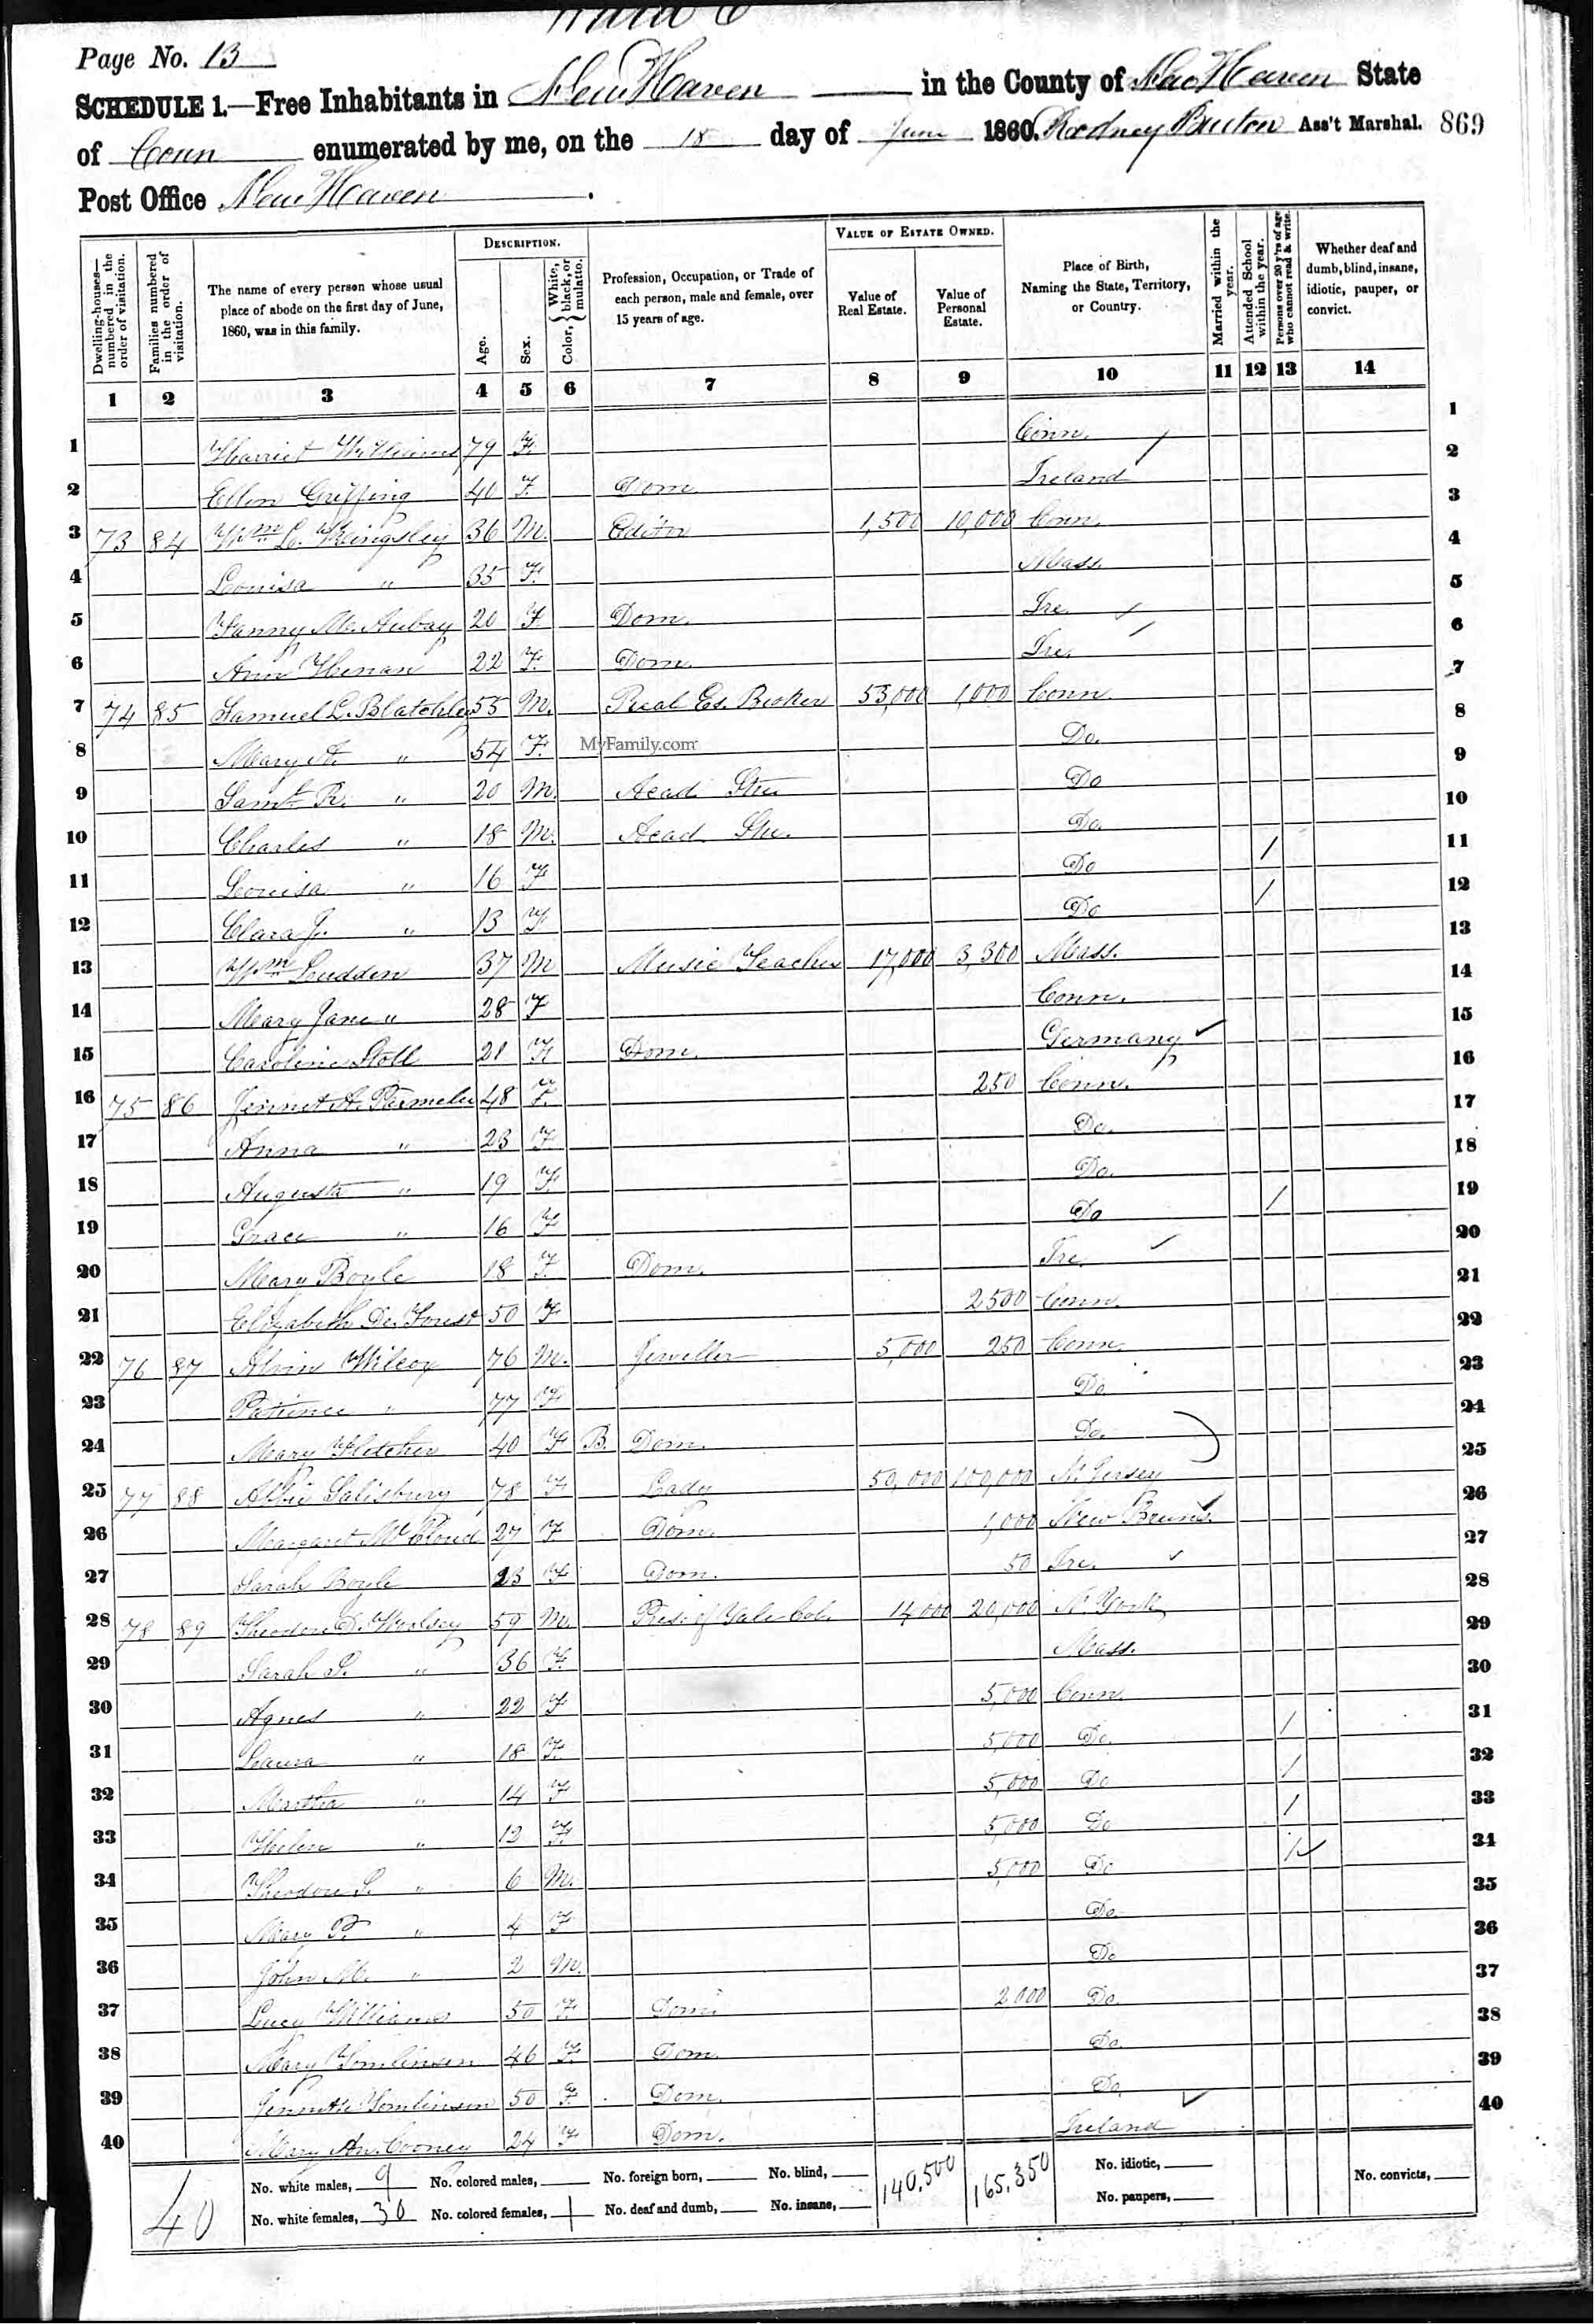 Page No. 13
SCHEDULE 1.—Free Inhabitants in New Haven in the County of New Haven State
of Conn enumerated by me, on the 18 day of June 1860. Rodney Burton Ass't Marshal. 869
Post Office New Haven.
DESCRIPTION. VALUE OF ESTATE OWNED.
Dwelling-houses—numbered in the order of visitation. Families numbered in the order of visitation. The name of every person whose usual place of abode on the first day of June, 1860, was in this family. Age. Sex. Color, { White, black, or mulatto. Profession, Occupation, or Trade of each person, male and female, over 15 years of age. Value of Real Estate. Value of Personal Estate. Place of Birth, Naming the State, Territory, or Country. Married within the year. Attended School within the year. Persons over 20 y'rs of age who cannot read & write. Whether deaf and dumb, blind, insane, idiotic, pauper, or convict.
1 2 3 4 5 6 7 8 9 10 11 12 13 14
1 Harriet Williams 79 F. Conn. / 1
2 Ellen Griffing 40 F. Dom. Ireland 2
3 73 84 Wm L. Kingsley 36 M. Editor 1,500 10,000 Conn. 3
4 Louisa " 35 F. Mass. 4
5 Fanny 20 F Dom. Ire. 5
6 Ann Henan 22 F. Dom. Ire. 6
7 74 85 Samuel L. Blatchley 55 M. Real Es. Broker 53,000 1,000 Conn 7
8 Mary A. " 54 F. MyFamily.com Do. 8
9 Saml R. " 20 M. Acad Stu Do 9
10 Charles " 18 M. Acad Stu. Do. 10
11 Louisa " 16 F Do / 11
12 Clara J. " 13 F Do / 12
13 Wm Ludden 37 M Music Teacher 17,000 3,300 Mass. 13
14 Mary Jane " 28 F Conn. 14
15 Caroline Stoll 21 F Dom. Germany 15
16 75 86 Jennet A. Parmelee 48 F. 250 Conn. 16
17 Anna " 23 F. Do. 17
18 Augusta " 19 F. Do. 18
19 Grace " 16 F Do / 19
20 Mary Boyle 18 F. Dom. Ire. 20
21 Elizabeth De Forest 50 F 2500 Conn. 21
22 76 87 Alvin Wilcox 76 M. Jeweller 5,000 250 Conn. 22
23 Patience " 77 F Do 23
24 Mary Fletcher 40 F B. Dom. Do. 24
25 77 88 Abbie Salisbury 78 F Lady 50,000 100,000 N. Jersey 25
26 Margaret McCloud 27 F Dom. 1,000 New Bruns. 26
27 Sarah Boyle 23 F Dom. 50 Ire. 27
28 78 89 Theodore D. Woolsey 59 M. Pres. of Yale Col. 14,000 20,000 N. York 28
29 Sarah S. " 36 F. Mass. 29
30 Agnes " 22 F 5,000 Conn. 30
31 Laura " 18 F. 5,000 Do. / 31
32 Martha " 14 F 5,000 Do / 32
33 Helen " 12 F. 5,000 Do / 33
34 Theodore S. " 6 M. 5,000 Do / 34
35 Mary P. " 4 F Do. 35
36 John M. " 2 M. Do 36
37 Lucy Williams 50 F. Dom. 2000 Do. 37
38 Mary Tomlinson 46 F. Dom. Do. 38
39 Jennette Tomlinson 50 F. Dom. Do. 39
40 Mary An. Cooney 24 F Dom. Ireland 40
40 No. white males, 9 No. colored males, No. foreign born, No. blind, 140,500 165,350 No. idiotic, No. convicts,
No. white females, 30 No. colored females, 1 No. deaf and dumb, No. insane, No. paupers,